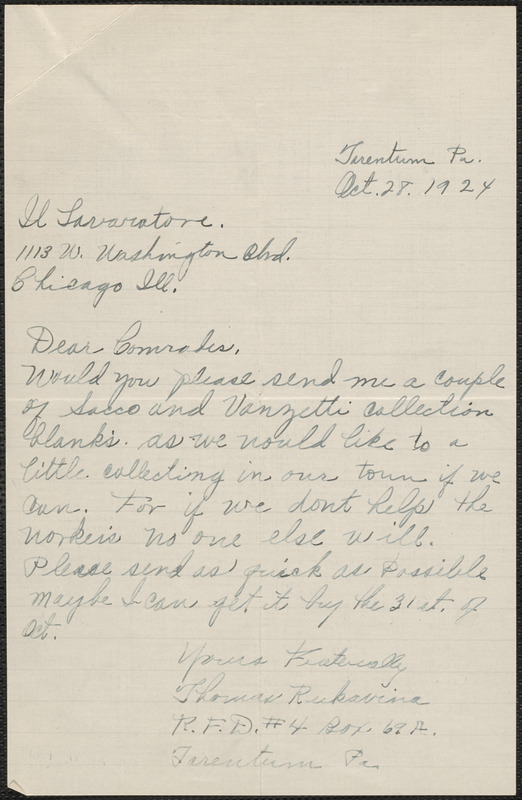 Tarentum Pa.
Oct. 28. 1924
Il Lavaratore.
1113 W. Washington Blvd.
Chicago Ill.
Dear Comrades,
Would you please send me a couple
of Sacco and Vanzetti collection
blanks. as we would like to a
little collecting in our town if we
can. For if we dont help the
workers no one else will.
Please send as quick as possible
maybe I can get it by the 31 st. of
Oct.
Yours Fraternally
Thomas Rukavina
R.F.D. #4 Box 69 A.
Tarentum Pa